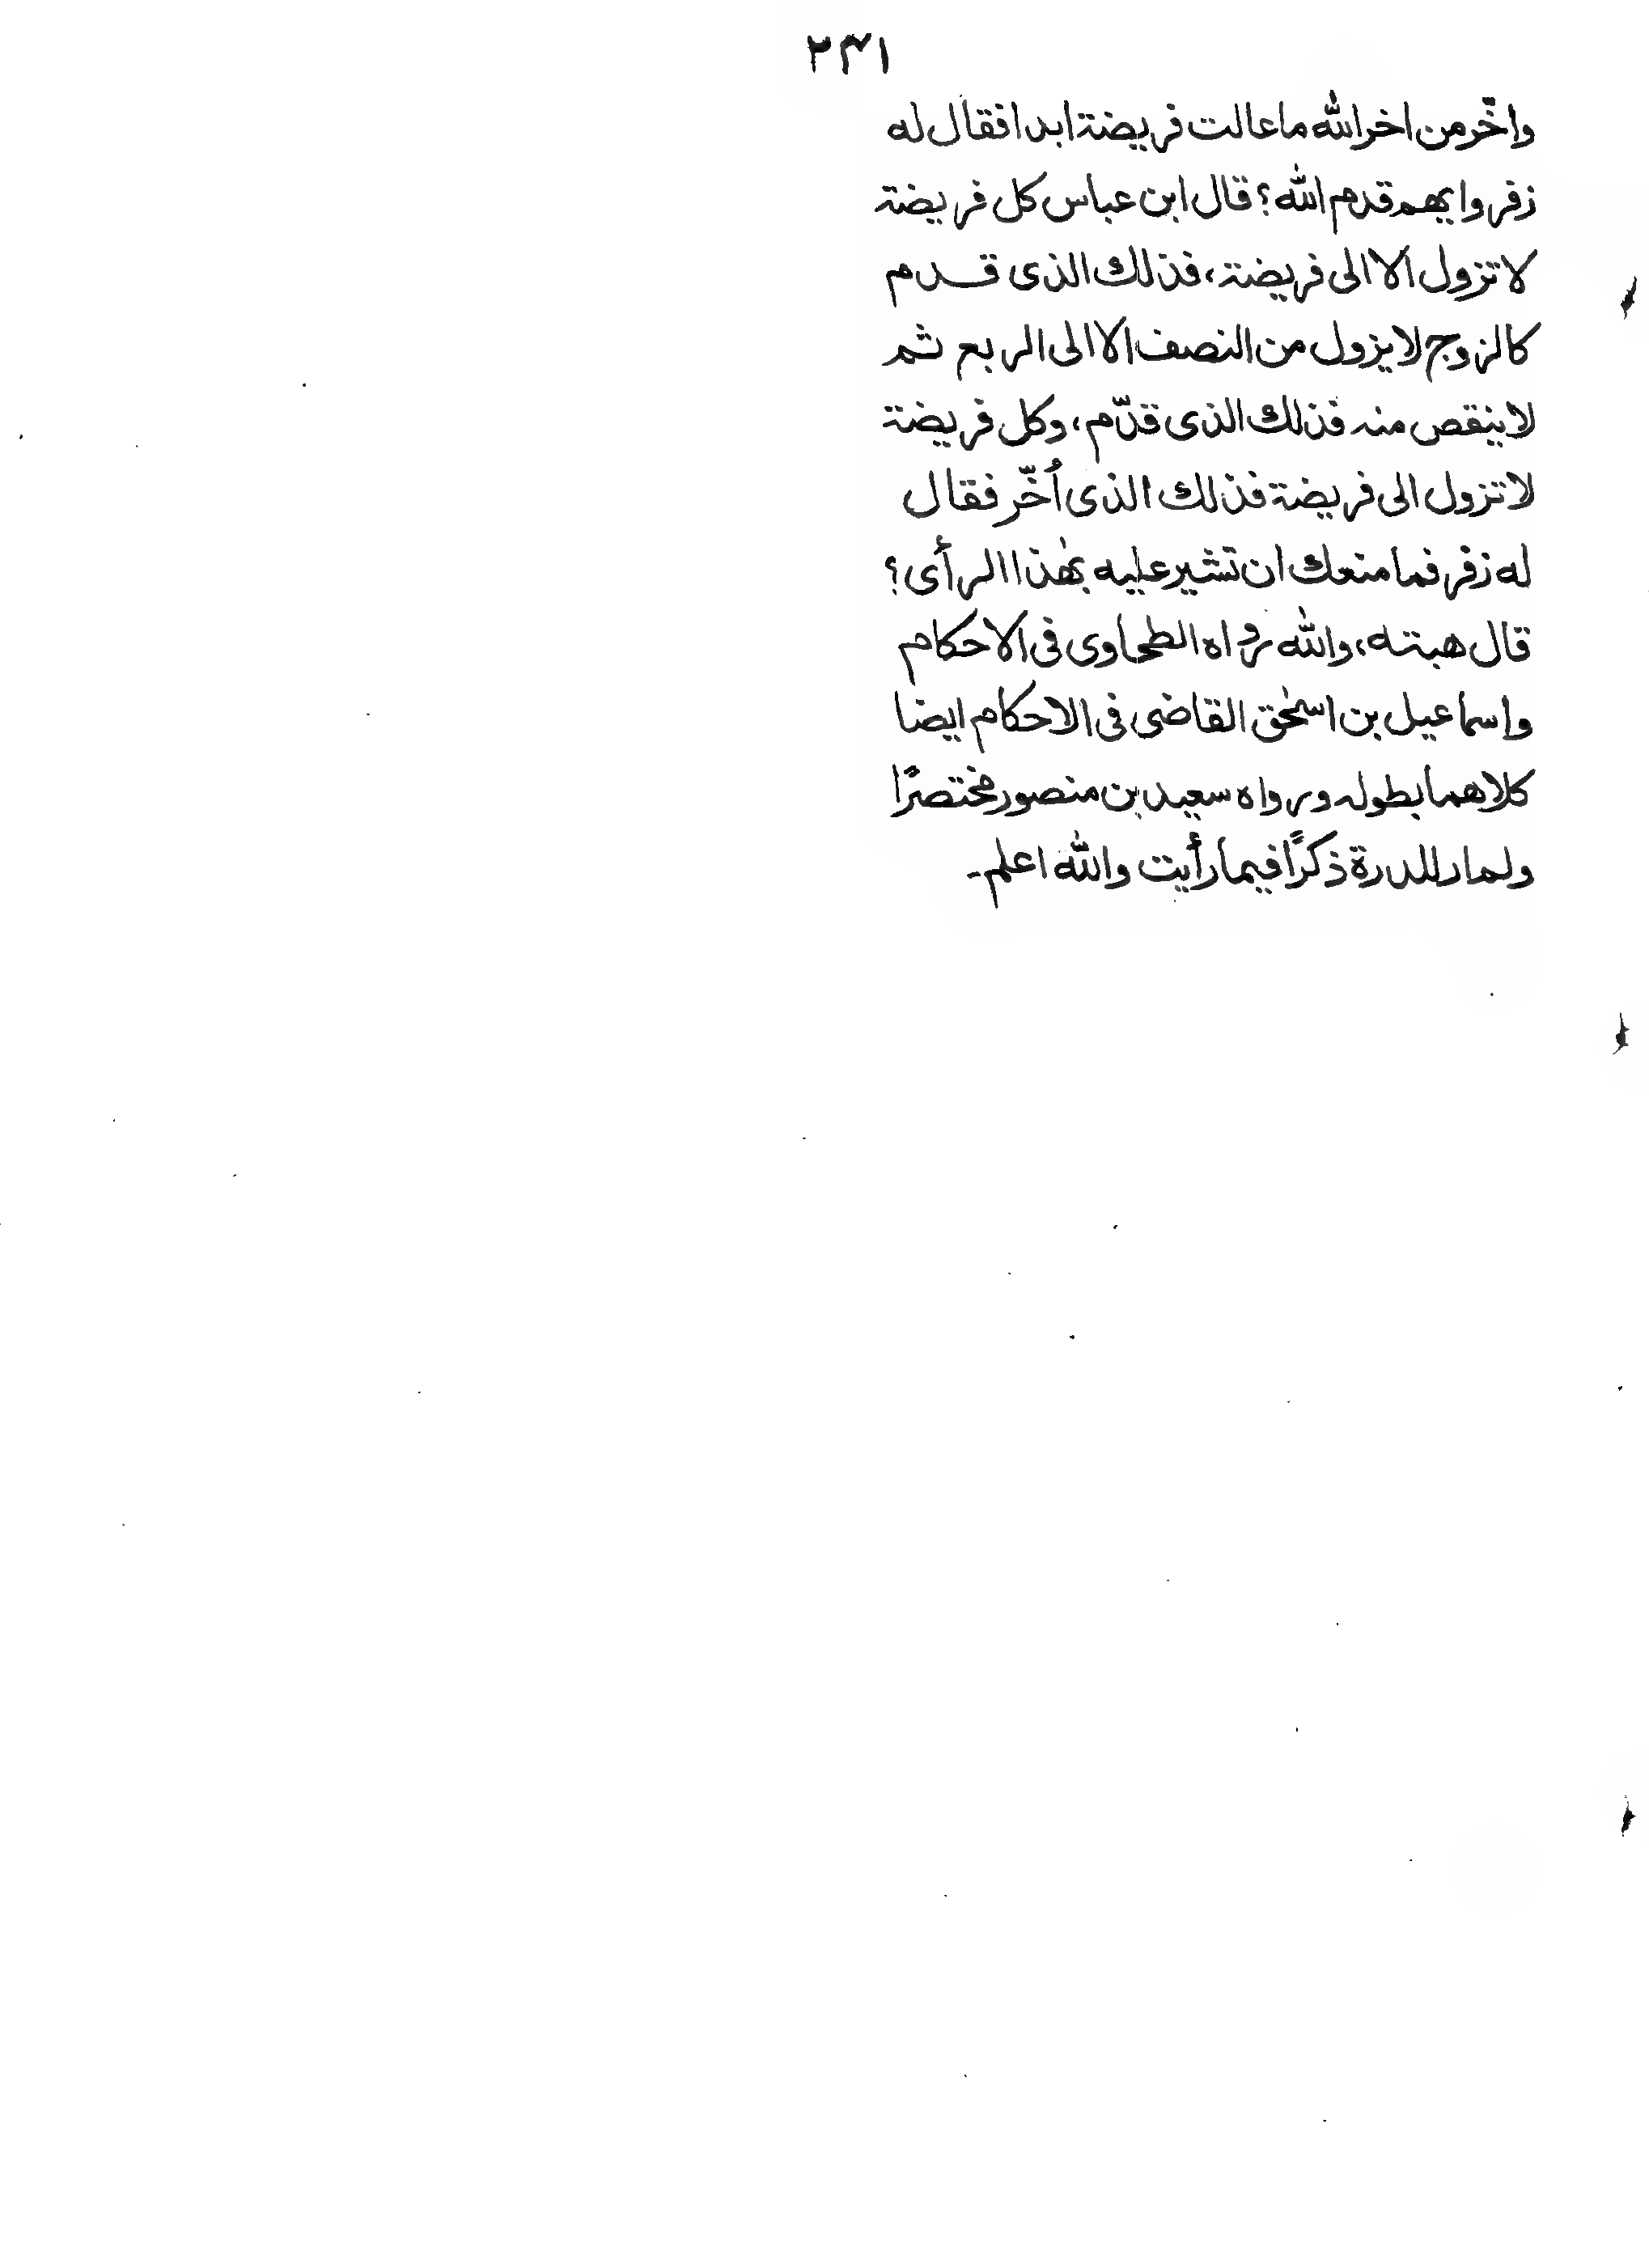 ۲۴۱
واخّر من اخر الله ما عالت فريضة ابدا فقال له
زفر وايهم قدم الله؟ قال ابن عباس كل فريضة
لا تزول الا الى فريضة، فذلك الذى قدم
كالزوج لا يزول من النصف الا الى الربع ثم
لا ينقص منه فذلك الذى قدّم، وكل فريضة
لا تزول الى فريضة فذلك الذى أُخّر فقال
له زفر فما منعك ان تشير عليه بهٰذا الرأى؟
قال هبته، والله رواه الطحاوى فى الاحكام
واسماعيل بن اسحٰق القاضى فى الاحكام ايضا
كلاهما بطوله ورواه سعيد بن منصور مختصرًا
ولم ار للدرة ذكرًا فيما رأيت والله اعلم۔